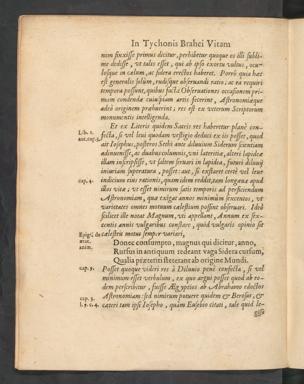 In Tychonis Brahei Vitam
nem finxisse primus dicitur, perhibetur quoque os illi subli-
me dedisse, ut tales esset, qui ab ipso exortu vultus, ocu-
losque in cælum, ac sidera erectos haberet. Porrò quia hæc
est generalis solùm, rudisque observandi ratio, ac ea requiri
tempora possunt, quibus factæ Observationes occasionem pri-
mam condendæ cuiuspiam artis fecerint, Astronomiæque
adeò originem præbuerint; res est ex veterum Scriptorum
monumentis intelligenda.
Et ex Literis quidem Sacris res haberetur planè con-
fecta, si vel levi quodam vestigio deduci ex iis posset, quod
Lib. 1.
ait Iosephus, posteros Sethi ante diluvium Siderum scientiam
adinvenisse, ac duabus columnis, uni lateritiæ, alteri lapideæ
illam inscripsisse, ut saltem servari in lapidea, futuri diluvij
iniuriam superatura, posset: aut, si exstaret vel leve
indicium eius rationis, quam idem reddit, tam longævæ apud
cap. 4.
illos vitæ, ut esset nimirum satis temporis ad perficiendam
Astronomiam, quæ exigat annos minimùm sexcentos, ut
varietates omnes motuum cælestium possint observari. Ideò
scilicet ille notat Magnum, vti appellant, Annum ex sex-
centis annis vulgaribus constare, quid vulgaris opinio sit
cælestis motus semper variari,
Donec consumpto, magnus qui dicitur, anno,
Rursus in antiquum redeant vaga Sidera cursum,
Qualia præteriti steterant ab origine Mundi.
cap. 9.
Posset quoque videri res à Diluvio penè confecta, si vel
minimum esset verbulum, ex quo argui posset quod ab eo-
dem perscribitur, fuisse Ægyptios ab Abrahamo edoctos
cap. 3.
Astronomiam: sed nimirum potuere quidem & Berosus, &
cæteri tam ipsi Iosepho, quàm Eusebio citati, tale quid le-
gisse